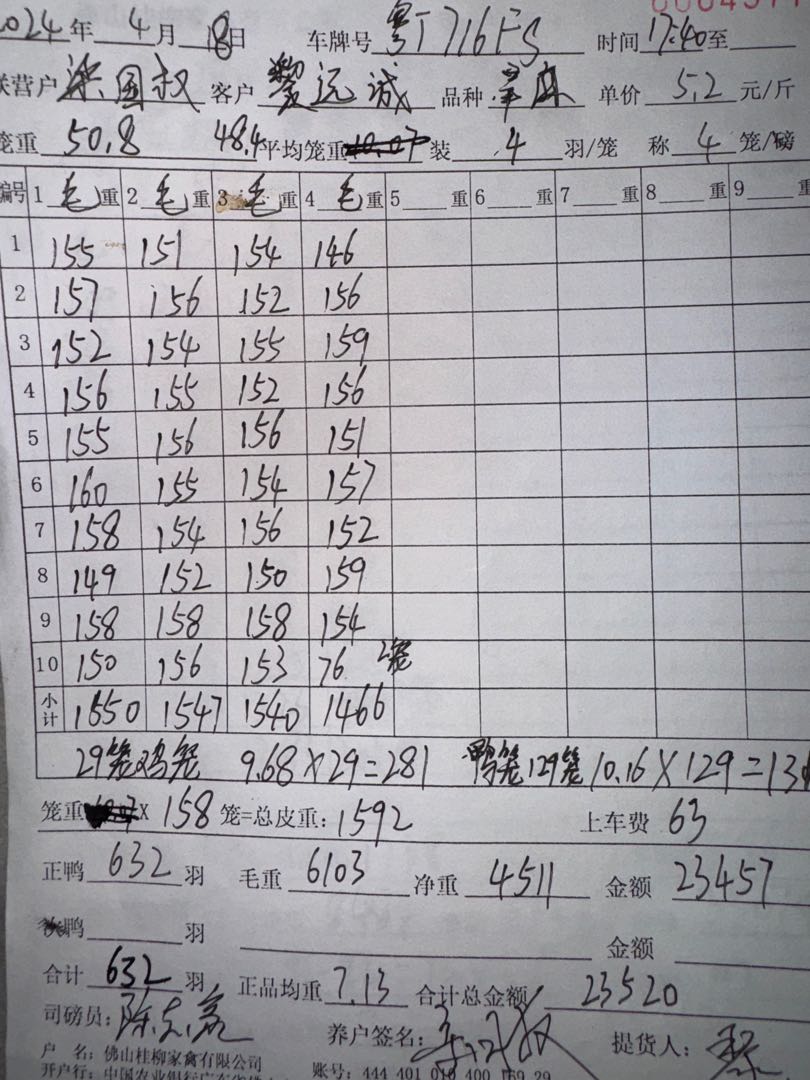 2024年 4月 18日 车牌号 粤J716FS 时间 17:40 至
联营户 客户 黎远诚 品种 单价 5.2 元/斤
笼重 50.8 48.4 平均笼重 装 4 羽/笼 称 4 笼/磅
编号 1 毛 重 2 毛 重 3 毛 重 4 毛 重 5 重 6 重 7 重 8 重 9 重
1 155 151 154 146
2 157 156 152 156
3 152 154 155 159
4 156 155 152 156
5 155 156 156 151
6 160 155 154 157
7 158 154 156 152
8 149 152 150 159
9 158 158 158 154
10 150 156 153 76 2笼
小计 1550 1547 1540 1466
29笼鸡笼 9.68×29=281 鸭笼129笼 10.16×129=13
笼重 X 158 笼=总皮重: 1592 上车费 63
正鸭 632 羽 毛重 6103 净重 4511 金额 23457
鸭 羽 金额
合计 632 羽 正品均重 7.13 合计总金额 23520
司磅员: 养户签名: 提货人:
户 名: 佛山桂柳家禽有限公司
开户行: 中国农业银行 账号: 444 401 010 400 169 29